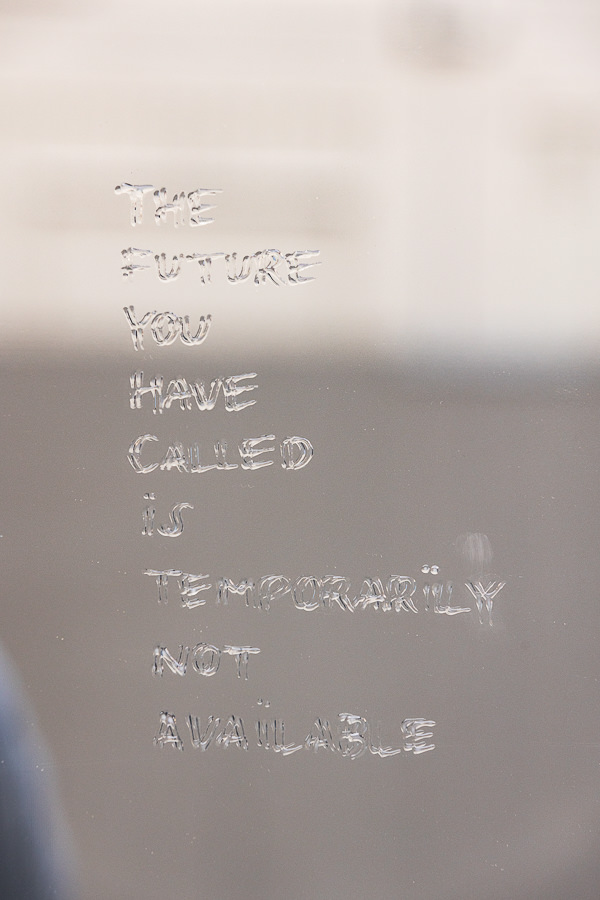 THE
FUTURE
YOU
HAVE
CALLED
iS
TEMPORARiLY
NOT
AVAiLABLE